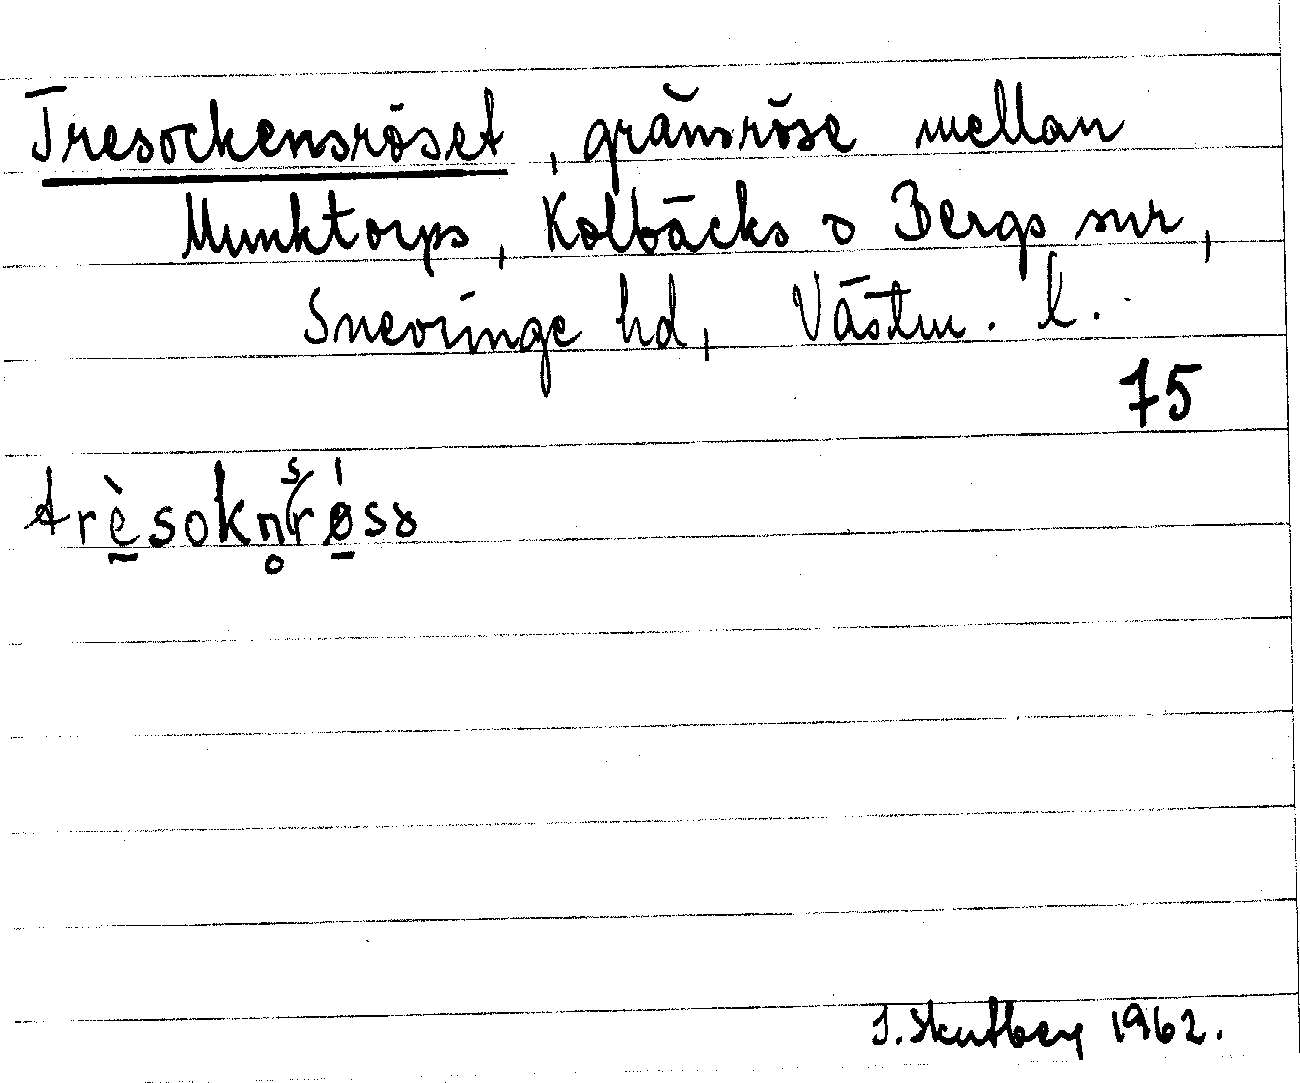 Tresockensröset, gränsröse mellan
Munktorps, Kolbäcks o Bergs snr,
Snevringe hd, Västm. l.
75
trèsokn̥(s)rǿsə
J. Skutberg 1962.